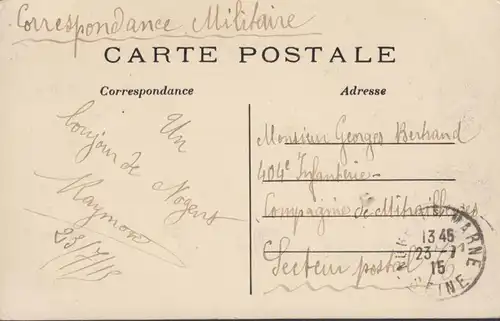 Correspondance Militaire
CARTE POSTALE
Correspondance
Adresse
Un
bonjour de Nogent
Raymond
23/7/15
Monsieur Georges Bertrand
404e Infanterie
Compagnie de Mitrailleuses
Secteur postal
MARNE
13 45
23 7
15
SEINE